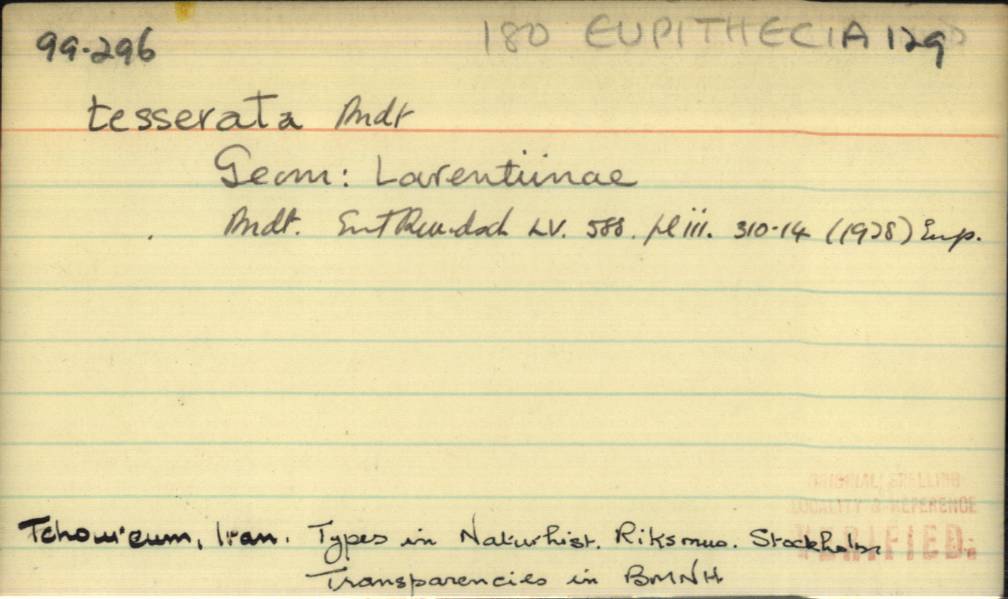 99.296 180 EUPITHECIA 129
tesserata Brdt
Geom: Larentiinae
Brdt. Ent Rundsch LV. 588. pl iii. 310-14 (1938) Eup.
ORIGINAL SPELLING
LOCALITY & REFERENCE
VERIFIED.
Iran. Types in Naturhist. Riksmus. Stockholm
Transparencies in BMNH